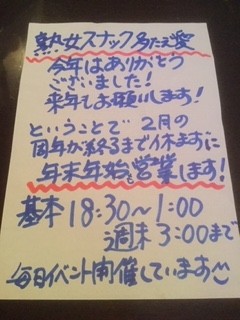 熟女スナック多たえ愛
今年はありがとう
ございました!
来年もお願いします!
ということで2月の
周年が終るまで休まずに
年末年始も営業します!
基本18:30~1:00
週末3:00まで
毎日イベント開催しています